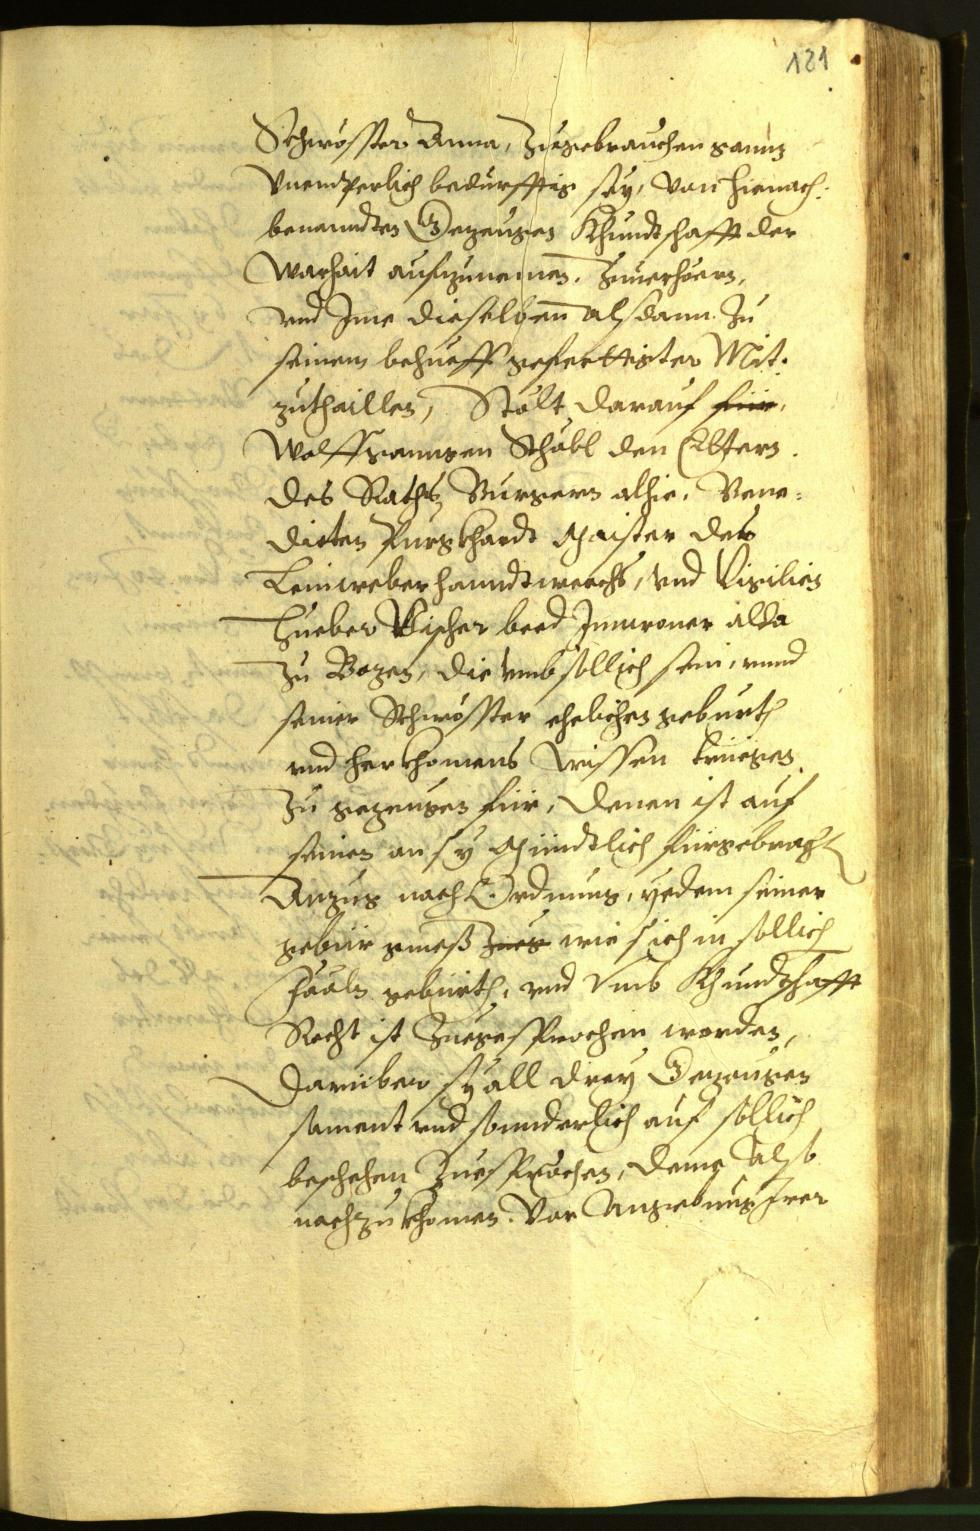 121
Schwösster Anna, Zugebrauchen gannz
Vnendperlich bedürfftig sey, von hienach:
benanndten Gezeugen Khundtschafft der
Warhait aufzunemen, Zuuerhörn,
vnd Ime dieselben alsdann Zu
seinem behueff gefertigter Mit:
zuthaillen, Stölt darauf für,
Wolffganngen Schäbl den Eltern
des Raths, Burgern alhie, Bene=
dicten Purgkhardt Maister des
Leinweber hanndtwerchs, vnd Vigilien
Hueber Vischer beed Innwoner alda
Zu Bozen, die vmb sollich sein, vnnd
seiner Schwösster ehelichen geburth
vnd herkhomens Wissen triegen
Zu gezeugen für, denen ist auf
seinen an sy Mündtlich fürgebracht
Anzug nach Ordnung, yedem seiner
gebür gmeß wie sich in sollich
Fäaln gebürth, vnd vmb Khundtschafft
Recht ist Zuegesprochen worden,
Darüber sy all drey Gezeugen
sament vnd sonnderlich auf sollich
beschehen Zuesprechen, deme also
nachzukhomen. Vor Angebung Irer